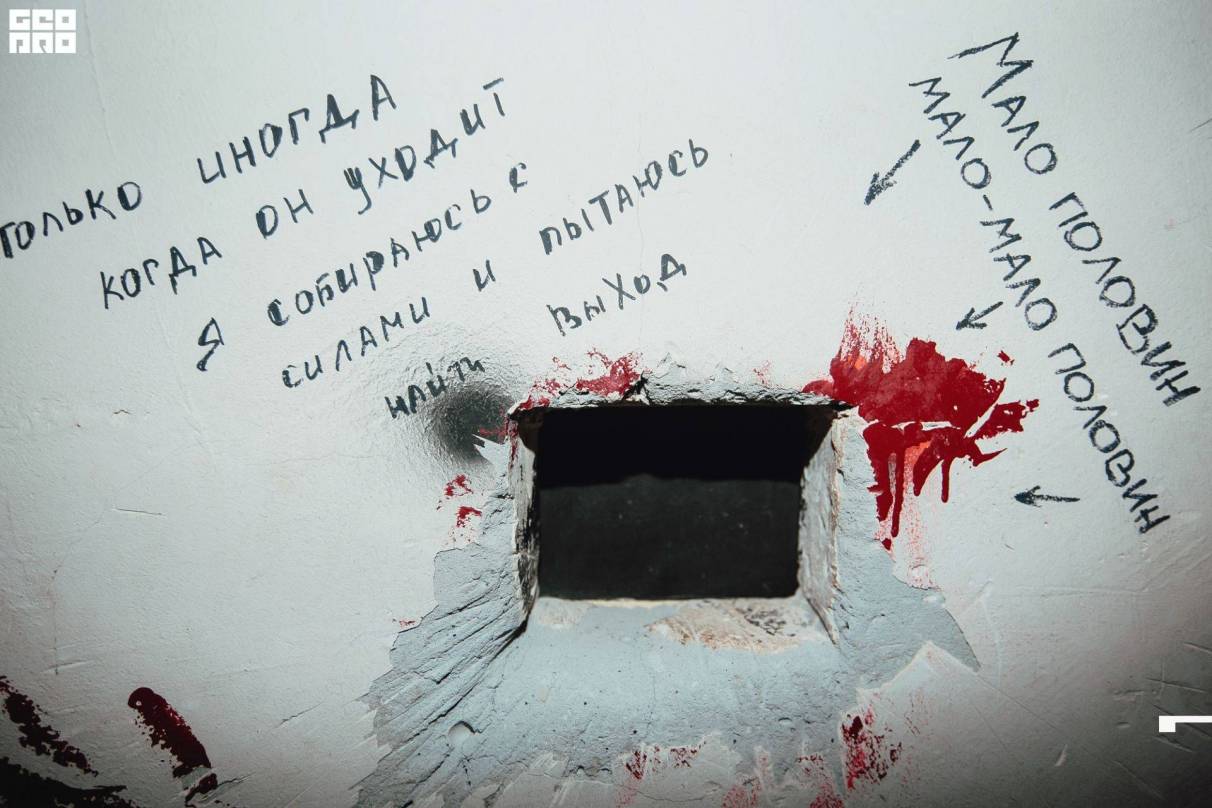 GEO
PRO
ТОЛЬКО ИНОГДА
КОГДА ОН УХОДИТ
Я СОБИРАЮСЬ С
СИЛАМИ И ПЫТАЮСЬ
НАЙТИ ВЫХОД
МАЛО ПОЛОВИН
МАЛО-МАЛО ПОЛОВИН